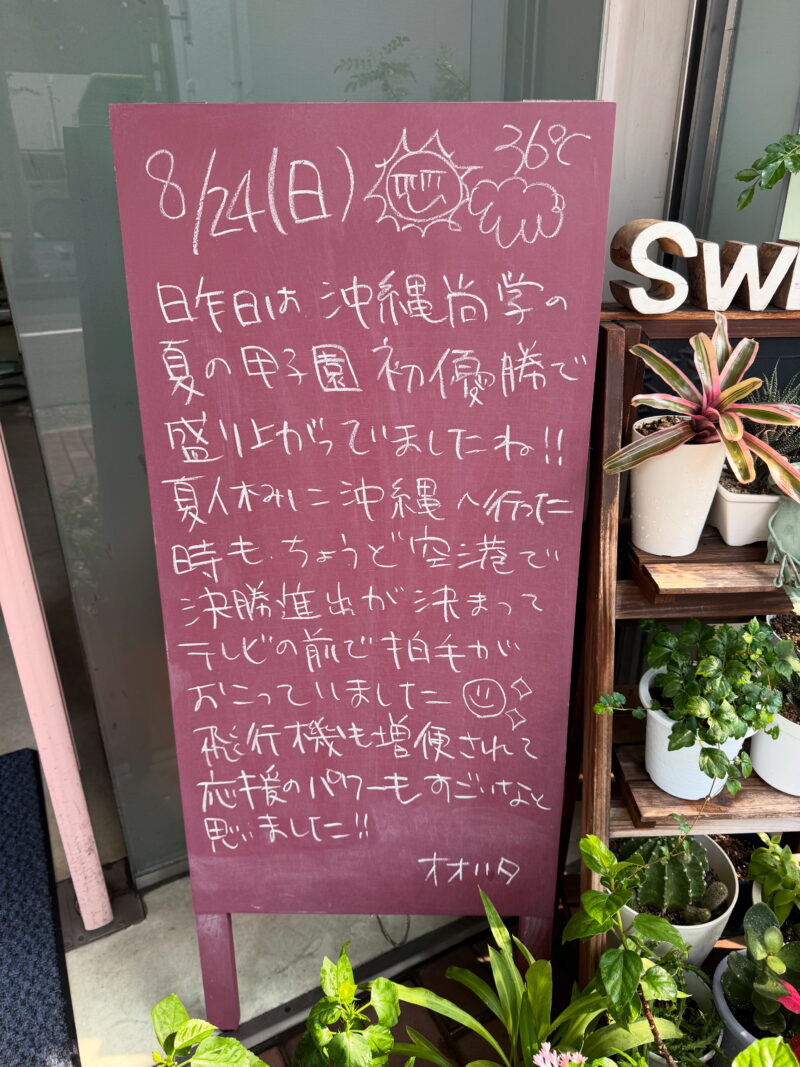 8/24(日) 36℃
昨日は 沖縄尚学の
夏の甲子園 初優勝で
盛り上がっていましたね!!
夏休みに沖縄へ行った
時も、ちょうど空港で
決勝進出が決まって
テレビの前で拍手が
おこっていました
飛行機も増便されて
応援のパワーもすごいなと
思いました!!
オオハタ
SW